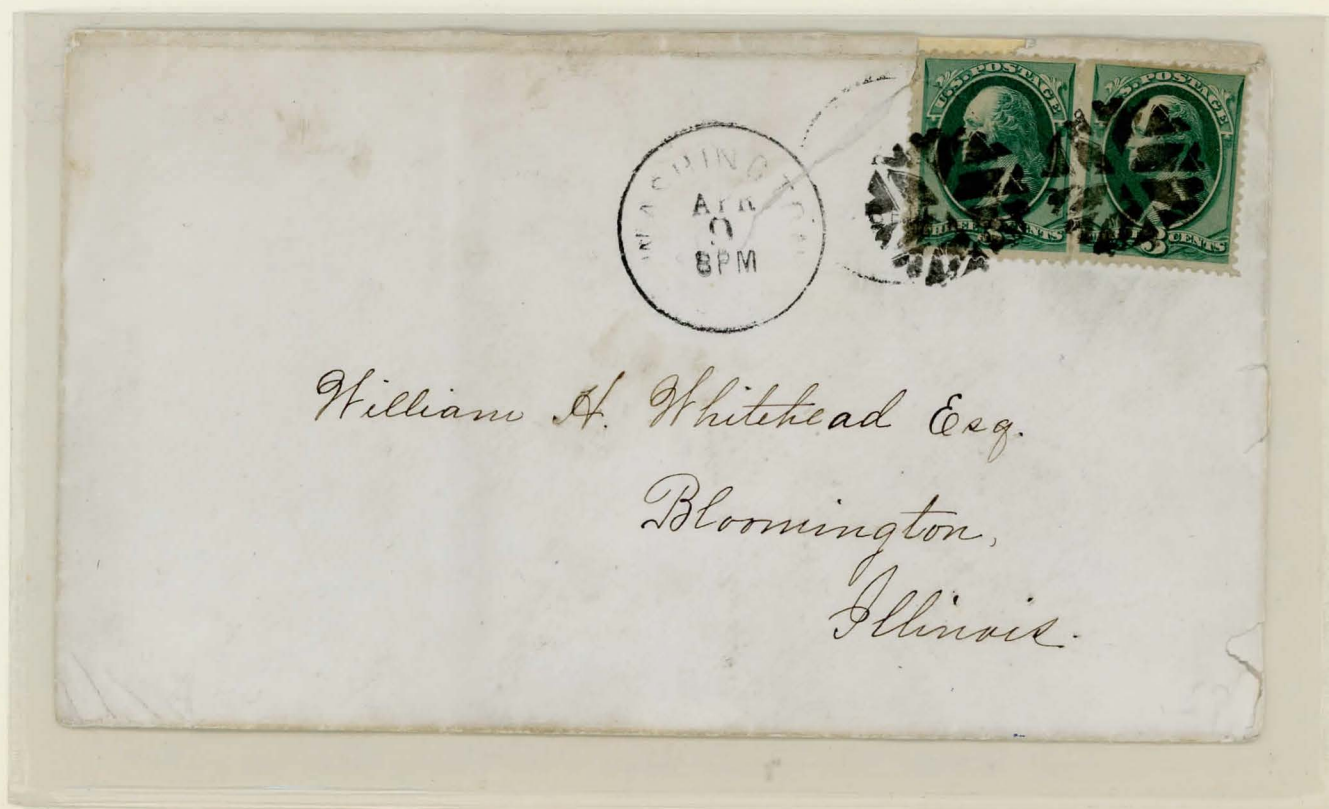 U.S. POSTAGE
U.S. POSTAGE
THREE CENTS
3 CENTS
WASHINGTON
APR
8PM
William H. Whitehead Esq.
Bloomington,
Illinois.